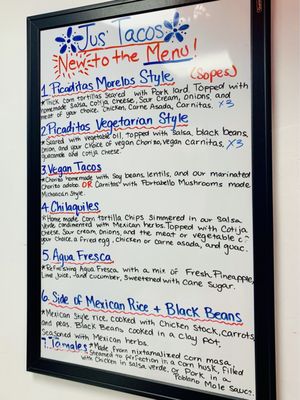 Jus' Tacos
New to the Menu!
1. Picaditas Morelos Style (Sopes)
* Thick corn tortillas Seared with Pork lard. Topped with
homemade Salsa, Cotija Cheese, Sour Cream, Onions, and
meat of your choice. Chicken, Carne Asada, Carnitas. x3
2. Picaditas Vegetarian Style
* Seared with vegetable oil, topped with Salsa, black beans,
Onion, and your choice of vegan Chorizo, Vegan carnitas, x3
guacamole and cotija cheese.
3. Vegan Tacos
* Chorizo homemade with Soy beans, lentils, and our marinated
Chorizo adobo. OR Carnitas with Portabello Mushrooms made
Michoacan Style.
4. Chilaquiles
* Home made Corn tortilla chips Simmered in our Salsa
Verde condimented with Mexican herbs. Topped with Cotija
Cheese, Sour Cream, Onions, and the meat or vegetable of
your Choice, a fried egg, chicken or carne asada, and guac.
5. Agua Fresca
* Refreshing Agua Fresca, with a mix of Fresh, Pineapple,
Lime Juice, and cucumber, Sweetened with Cane Sugar.
6. Side of Mexican Rice + Black Beans
* Mexican Style rice, cooked with Chicken Stock, carrots,
and peas. Black Beans cooked in a clay pot,
Seasoned with Mexican herbs.
7. Tamales * Made from nixtamalized corn masa,
Steamed to perfection in a corn husk, filled
with Chicken in Salsa Verde, or Pork in a
Poblano Mole Sauce.